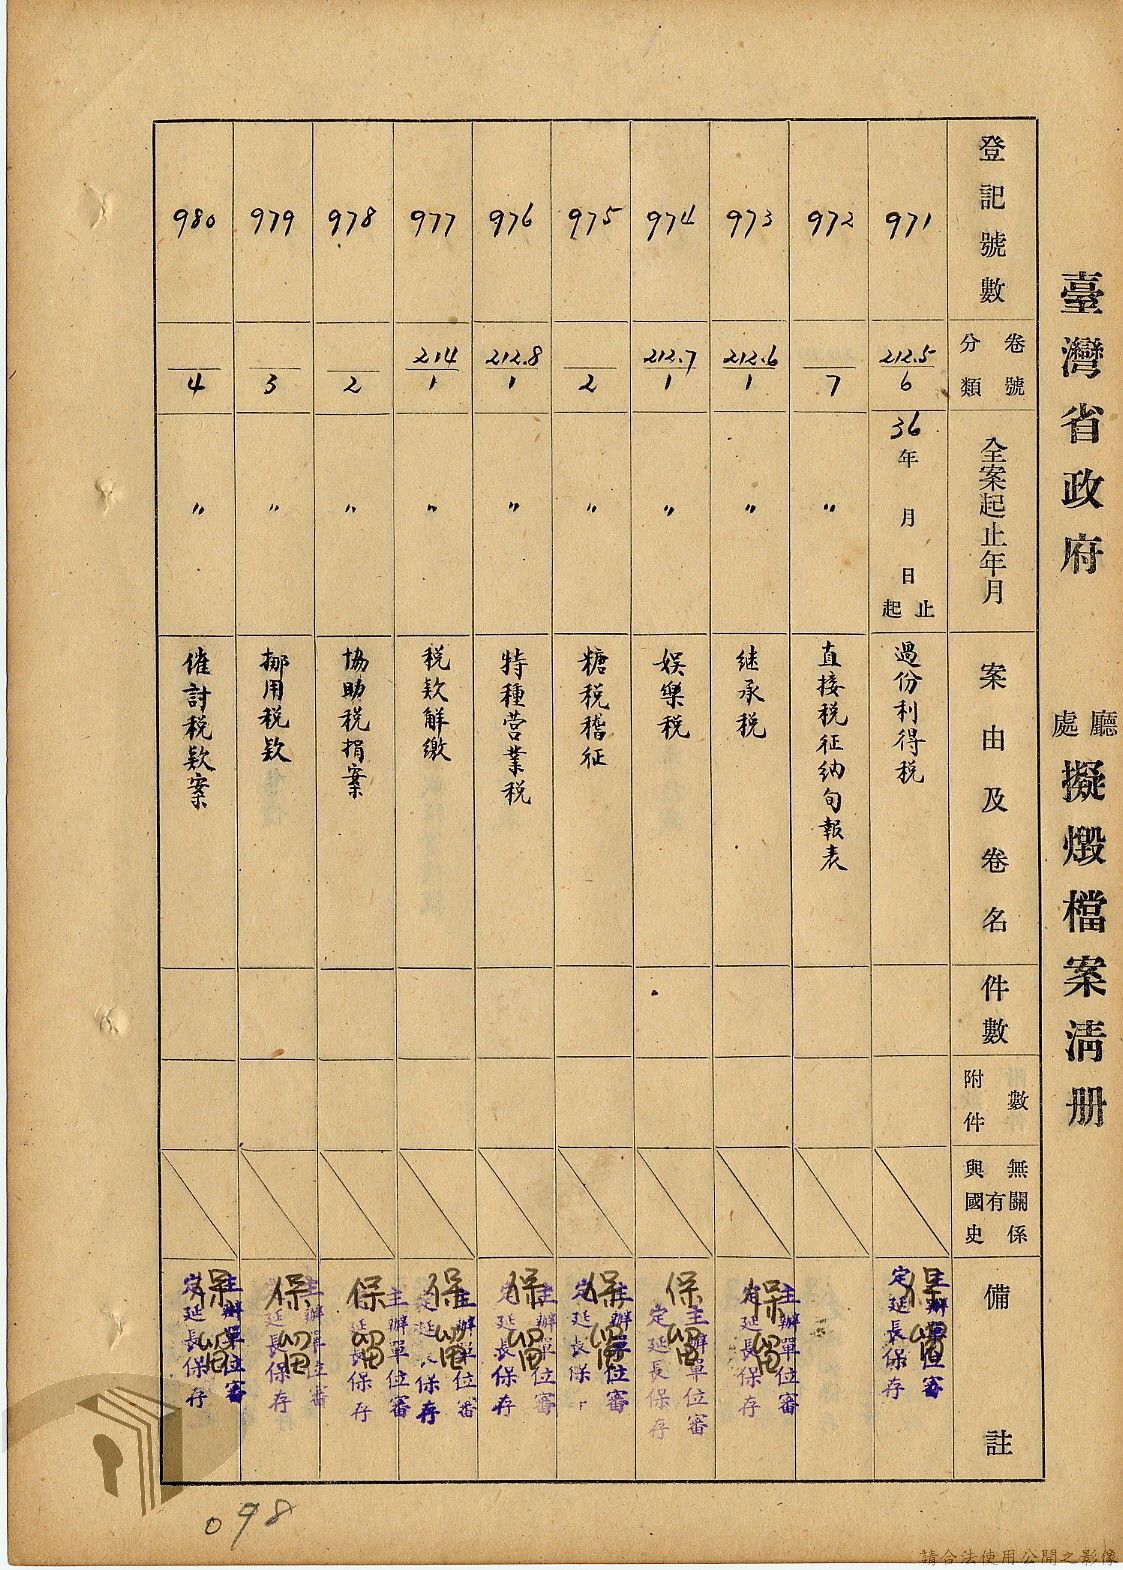 臺灣省政府 廳處 擬燬檔案清册
登記號數
卷號
分類
全案起止年月
案由及卷名
件數
附件數
與國史有無關係
備註
971
212.5
6
36年 月 日 起止
過份利得税
保留
主辦單位審
定延長保存
972
7
〃
直接税征納旬報表
973
212.6
1
〃
继承税
保留
主辦單位審
定延長保存
974
212.7
1
〃
娱樂税
保留
主辦單位審
定延長保存
975
2
〃
糖税稽征
保留
主辦單位審
定延長保
976
212.8
1
〃
特種营業税
保留
主辦單位審
定延長保存
977
214
1
〃
税欵解缴
保留
主辦單位審
定延長保存
978
2
〃
協助税捐案
保留
主辦單位審
定延長保存
979
3
〃
挪用税欵
保留
主辦單位審
定延長保存
980
4
〃
催討税欵案
保留
主辦單位審
定延長保存
098
請合法使用公開之影像